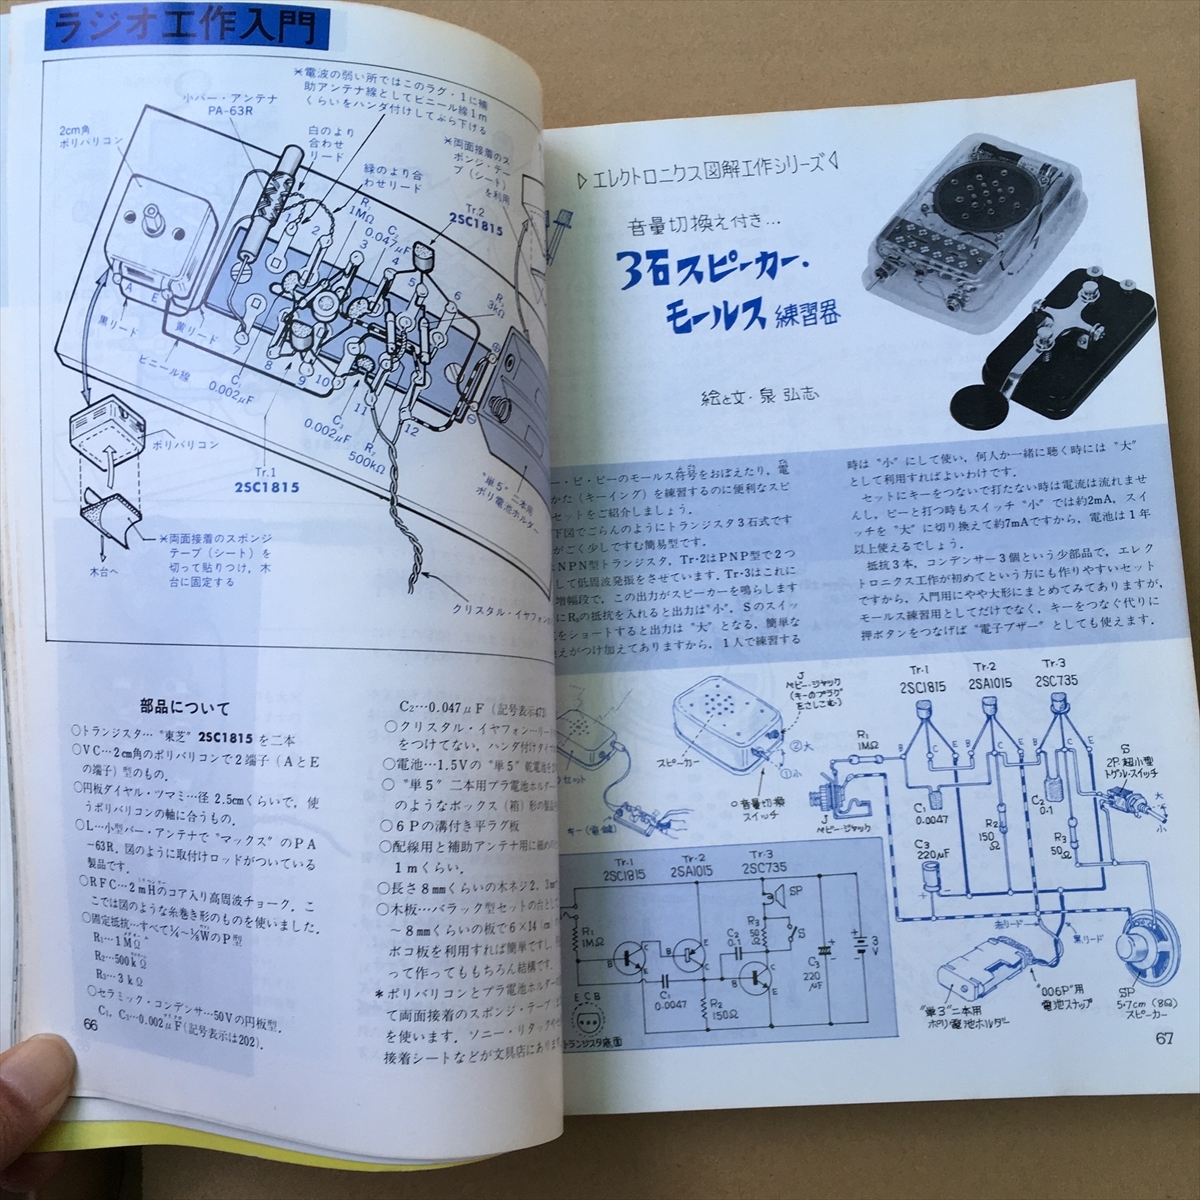 ラジオ工作入門
*電波の弱い所ではこのラグ・1に補
助アンテナ線としてビニール線1m
くらいをハンダ付けしてぶら下げる
小バー・アンテナ
PA-63R
2cm角
ポリバリコン
白のより
合わせ
リード
緑のより合
わせリード
*両面接着のス
ポンジ・テー
プ(シート)
を利用
Tr.2
2SC1815
R₁
1MΩ
C₂
0.047μF
R₃
3kΩ
1
2
3
4
5
6
A
E
黒リード
黄リード
ビニール線
7
8
9
10
11
12
C₁
0.002μF
C₃
0.002μF
R₂
500kΩ
Tr.1
2SC1815
ポリバリコン
*両面接着のスポンジ
テープ(シート)を
切って貼りつけ,木
台に固定する
木台へ
"単5"二本用
ポリ電池ホルダー
クリスタル・イヤフォン
部品について
○トランジスタ…"東芝"2SC1815を二本
○VC…2cm角のポリバリコンで2端子(AとE
の端子)型のもの.
○円板ダイヤル・ツマミ…径2.5cmくらいで,使
うポリバリコンの軸に合うもの.
○L…小型バー・アンテナで"マックス"のPA
-63R.図のように取付けロッドがついている
製品です.
○RFC…2mHのコア入り高周波チョーク.こ
こでは図のような糸巻き形のものを使いました.
○固定抵抗…すべて¼~⅛WのP型
R₁…1MΩ
R₂…500kΩ
R₃…3kΩ
○セラミック・コンデンサ…50Vの円板型.
C₁,C₃…0.002μF(記号表示は202).
66
C₂…0.047μF(記号表示473
○クリスタル・イヤフォン…リー
をつけてない,ハンダ付けタイ
○電池…1.5Vの"単5"乾電池を
○"単5"二本用プラ電池ホルダー
のようなボックス(箱)形の製品
○6Pの溝付き平ラグ板
○配線用と補助アンテナ用に細め
1mくらい.
○長さ8mmくらいの木ネジ2,3
○木板…バラック型セットの台とし
~8mmくらいの板で6×14(
ボコ板を利用すれば簡単ですし,
って作ってももちろん結構です.
*ポリバリコンとプラ電池ホルダー
て両面接着のスポンジ・テープ
を使います.ソニー・リタック
接着シートなどが文具店にあり
▷エレクトロニクス図解工作シリーズ◁
音量切換え付き…
3石スピーカー・
モールス練習器
絵と文・泉 弘志
ー・ピ・ピーのモールス符号をおぼえたり,電
かた(キーイング)を練習するのに便利なスピ
セットをご紹介しましょう.
下図でごらんのようにトランジスタ3石式です
がごく少しですむ簡易型です.
NPN型トランジスタ,Tr・2はPNP型で2つ
して低周波発振をさせています.Tr・3はこれに
増幅段で,この出力がスピーカーを鳴らします
にR₃の抵抗を入れると出力は"小",Sのスイッ
をショートすると出力は"大"となる,簡単な
えがつけ加えてありますから,1人で練習する
時は"小"にして使い,何人か一緒に聴く時には"大"
として利用すればよいわけです.
セットにキーをつないで打たない時は電流は流れませ
んし,ピーと打つ時もスイッチ"小"では約2mA,スイ
ッチを"大"に切り換えて約7mAですから,電池は1年
以上使えるでしょう.
抵抗3本,コンデンサー3個という少部品で,エレク
トロニクス工作が初めてという方にも作りやすいセット
ですから,入門用にやや大形にまとめてみてありますが,
モールス練習用としてだけでなく,キーをつなぐ代りに
押ボタンをつなげば"電子ブザー"としても使えます.
セット
キー(電鍵)
スピーカー
J
ベビー・ジャック
(キーのプラグ
をさしこむ)
②大
①小
○音量切換
スイッチ
Tr・1
2SC1815
Tr・2
2SA1015
Tr・3
2SC735
R₁
1MΩ
J
ベビー・ジャック
C₁
0.0047
C₂
0.1
R₂
150
Ω
R₃
50Ω
C₃
220μF
S
2P超小型
トグル・スイッチ
大
小
赤リード
黒リード
"単3"二本用
ポリ電池ホルダー
"006P"用
電池スナップ
SP
5~7cm(8Ω)
スピーカー
Tr・1
2SC1815
Tr・2
2SA1015
Tr・3
2SC735
R₁
1MΩ
C₁
0.0047
C₂
0.1
R₃
50
Ω
R₂
150Ω
SP
S
C₃
220
μF
3
V
E C B
トランジスタ底面
67